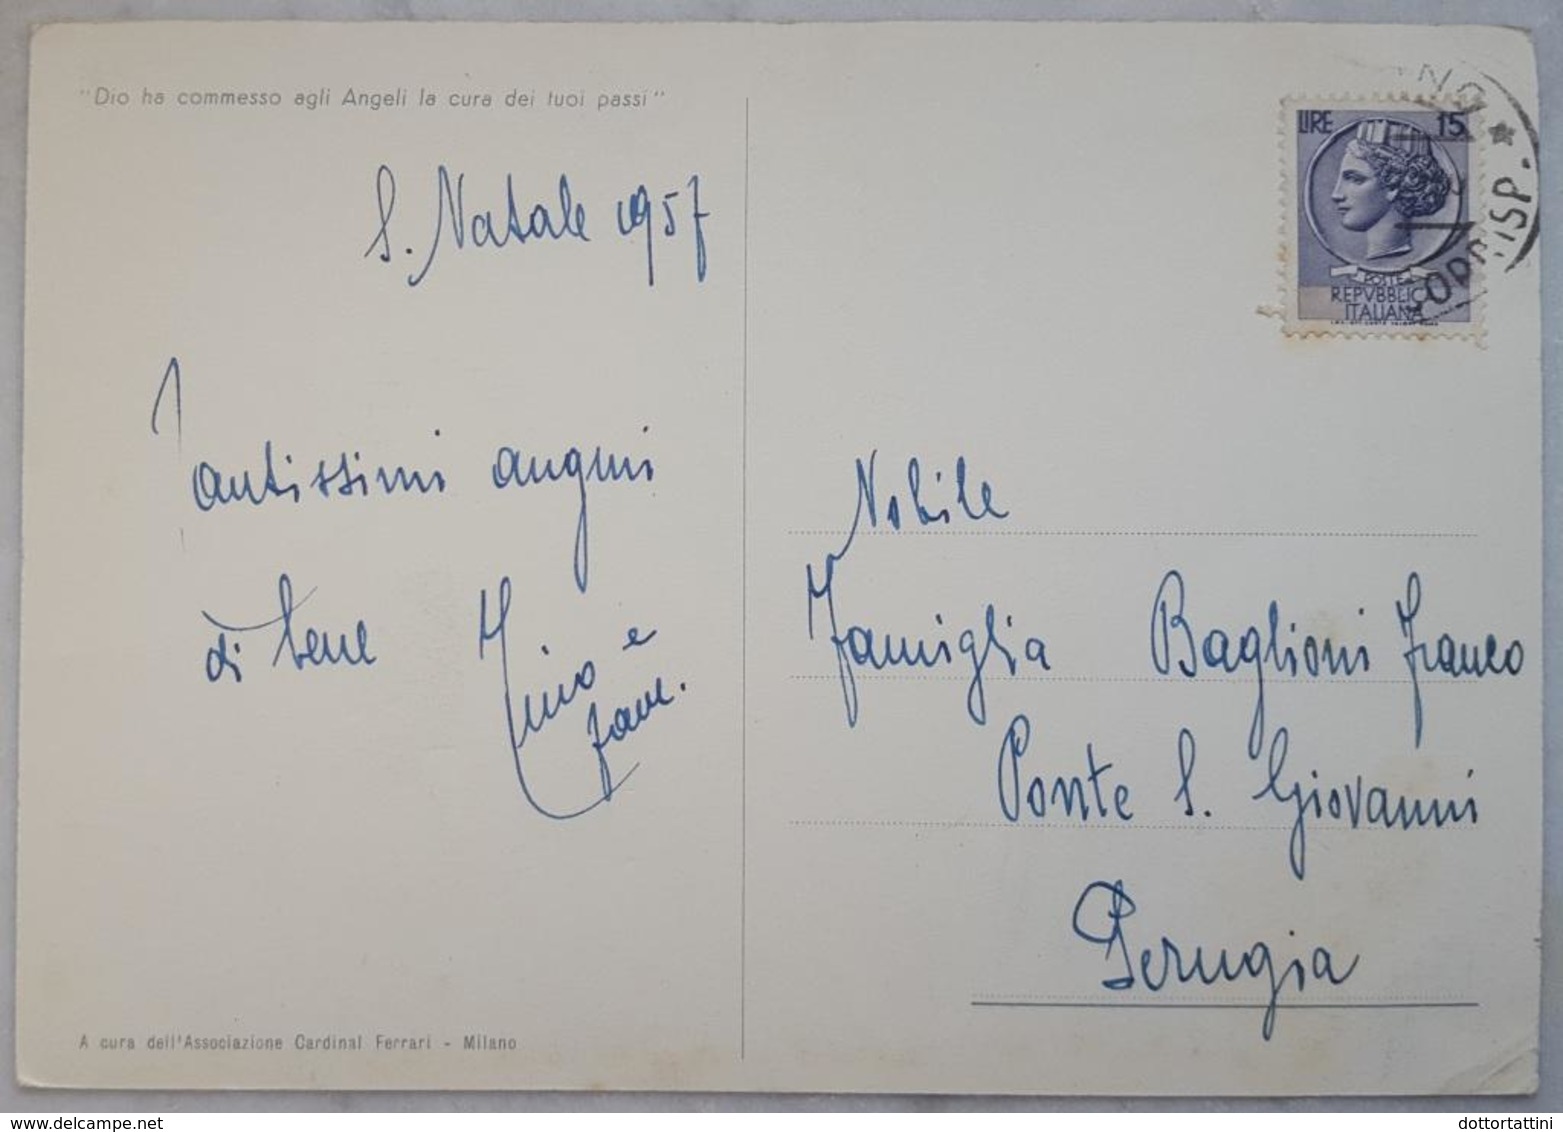 "Dio ha commesso agli Angeli la cura dei tuoi passi"
S. Natale 1957
Tantissimi auguri
di bene Nino e
fam.
A cura dell'Associazione Cardinal Ferrari - Milano
LIRE 15
POSTE
REPVBBLICA
ITALIANA
Nobile
Famiglia Baglioni Franco
Ponte S. Giovanni
Perugia
dottortattini